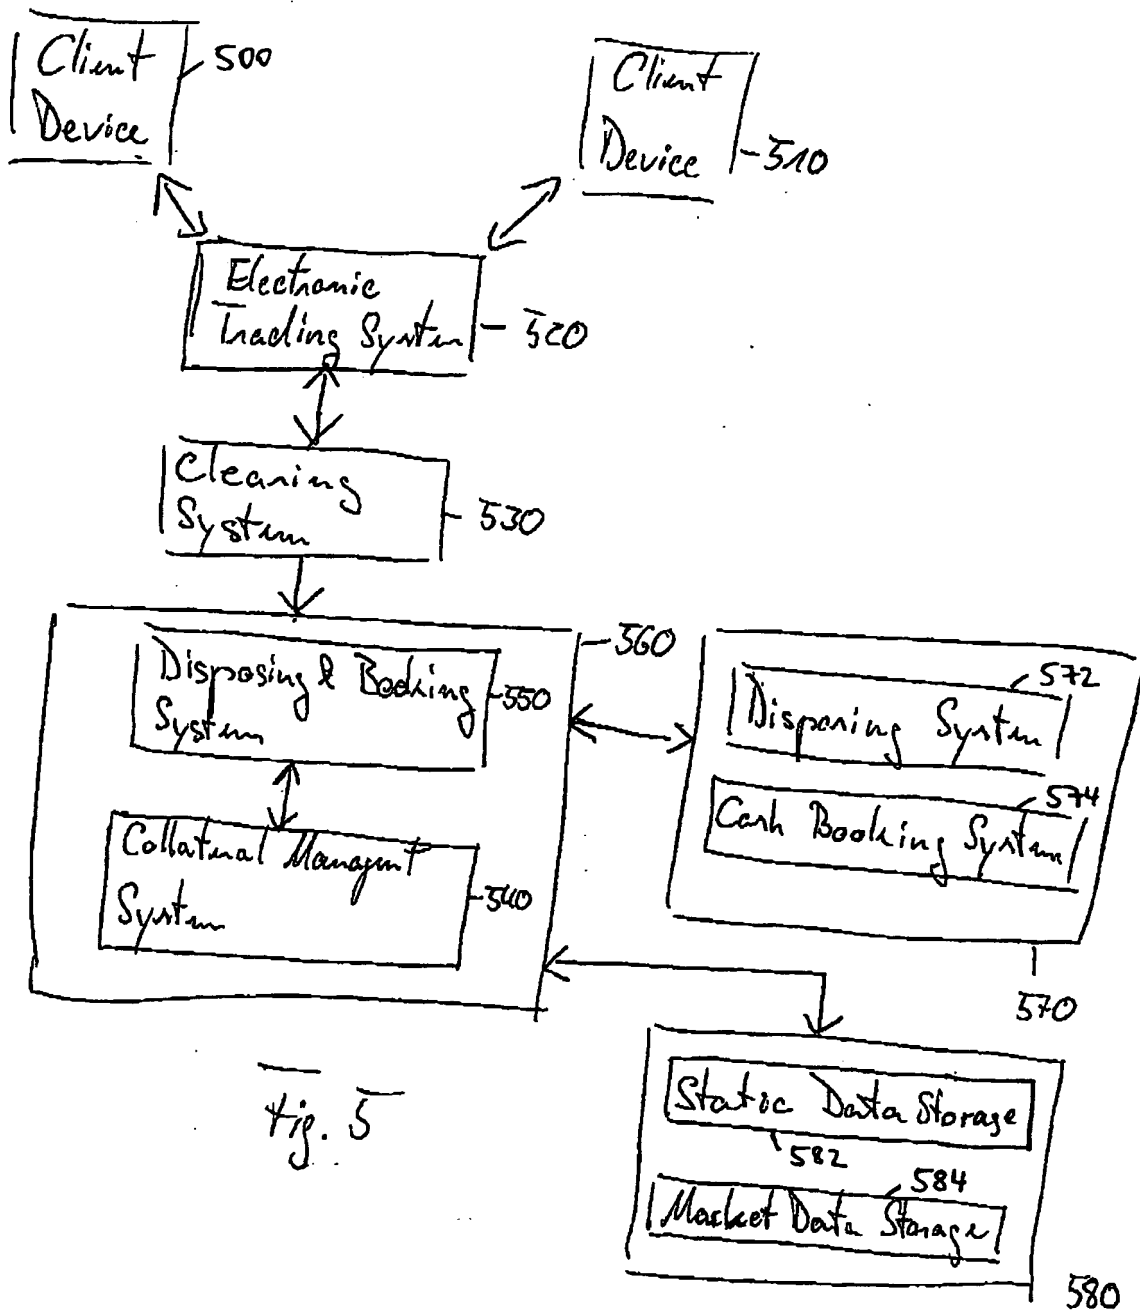 Client
Device
500
Client
Device
510
Electronic
Trading System
520
Clearing
System
530
560
Disposing & Booking
System
550
Collateral Managmt
System
540
572
Disposing System
574
Cash Booking System
570
Static Data Storage
582
584
Market Data Storage
580
Fig. 5